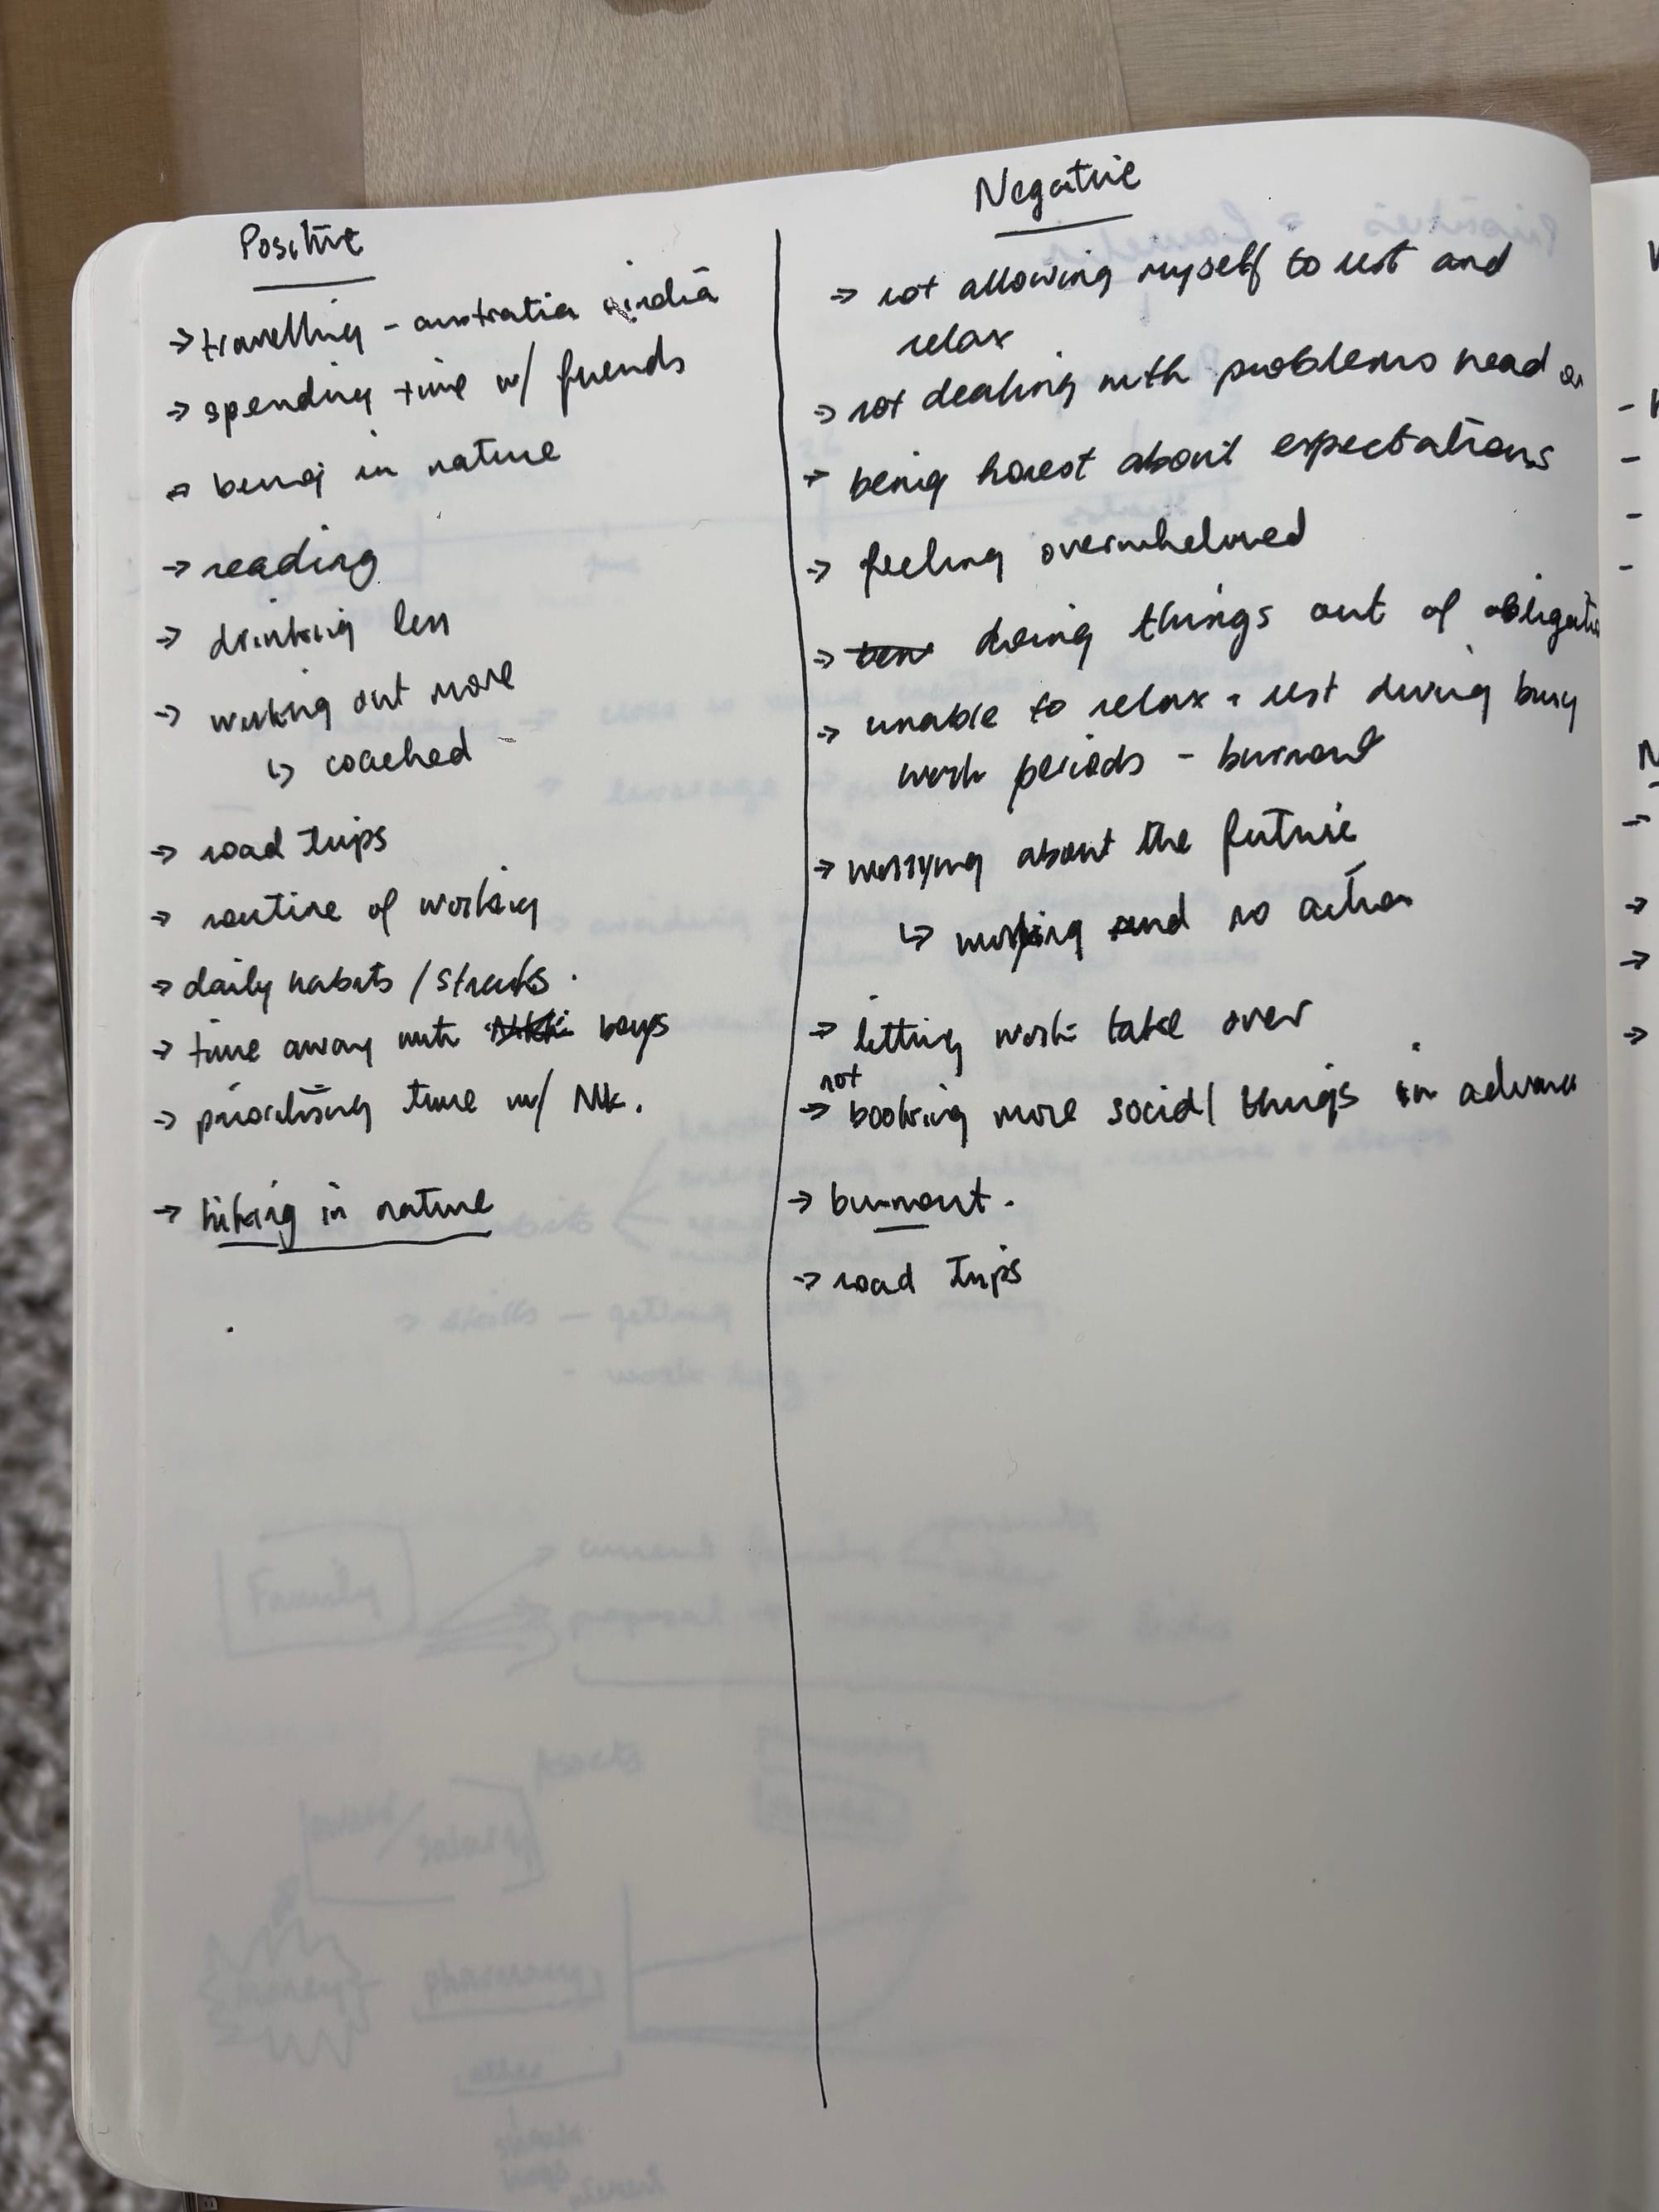 Positive
→ travelling - australia + india
→ spending time w/ friends
→ being in nature
→ reading
→ drinking less
→ working out more
↳ coached
→ road trips
→ routine of working
→ daily habits / streaks.
→ time away with boys
→ prioritising time w/ Nk.
→ hiking in nature
Negative
→ not allowing myself to rest and
relax
→ not dealing with problems head on
→ being honest about expectations
→ feeling overwhelmed
→ doing things out of obligation
→ unable to relax + rest during busy
work periods - burnout
→ worrying about the future
↳ worrying and no action
→ letting work take over
not
→ booking more social things in advance
→ burnout.
→ road trips